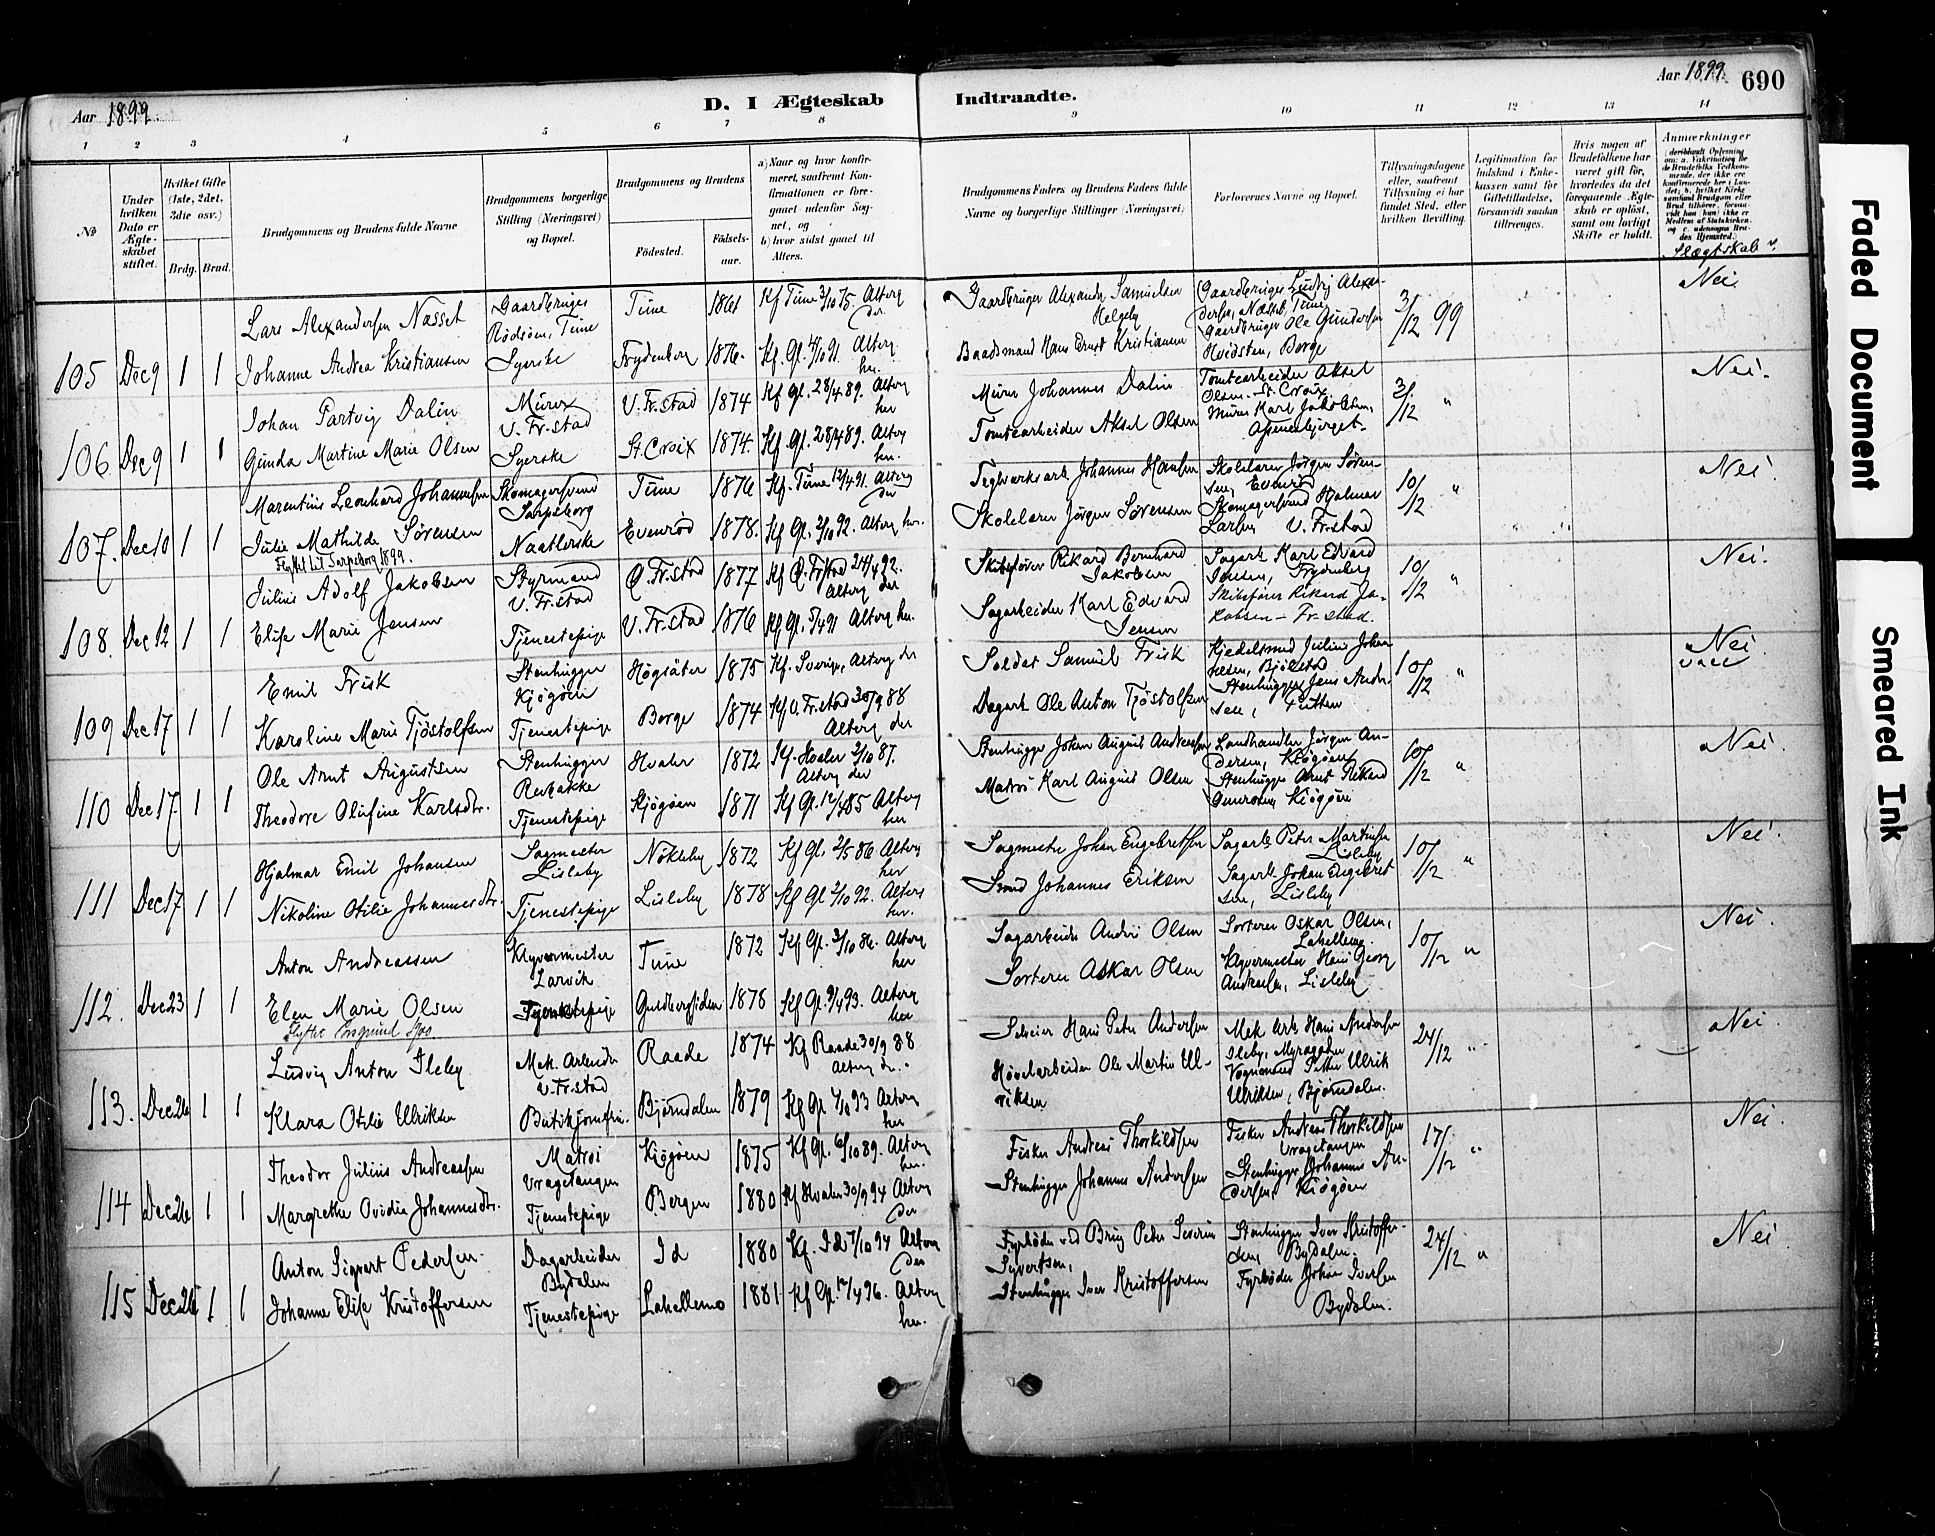 Aar 1899.
D. I Ægteskab
Indtraadte.
Aar 1899. 690
1 2 3 4 5 6 7 8 9 10 11 12 13 14
№
Under
hvilken
Dato er
Ægte-
skabet
stiftet.
Hvilket Gifte
(1ste, 2det,
3die osv.)
Brdg. Brud.
Brudgommens og Brudens fulde Navne
Brudgommens borgerlige
Stilling (Næringsvei)
og Bopæl.
Brudgommens og Brudens
Fødested.
Fødsels-
aar.
a) Naar og hvor konfir-
meret, saafremt Kon-
firmationen er fore-
gaaet udenfor Sog-
net, og
b) hvor sidst gaaet til
Alters.
Brudgommens Faders og Brudens Faders fulde
Navne og borgerlige Stillinger (Næringsvei)
Forlovernes Navne og Bopæl.
Tillysningsdagene
eller, saafremt
Tillysning ei har
fundet Sted, efter
hvilken Bevilling.
Legitimation for
Indskud i Enke-
kassen samt for
Giftetilladelse,
forsaavidt saadan
tiltrænges.
Hvis nogen af
Brudefolkene har
været gift før,
hvorledes da det
foregaaende Ægte-
skab er opløst,
samt om lovligt
Skifte er holdt.
Anmærkninger
Slægtskab
105 Dec 9 1 1
Lars Alexandersen Nasset
Gaardbruger
Rødsøen, Tune
Tune 1861 Kf Tune 3/10 75 Alterg
der
Gaardbruger Alexander Samuelsen
Helgeby
Gaardbruger Ludvig Alexan-
dersen, Næsset, Tune
3/12 99
Nei
Johanne Andrea Kristiansen
Syerske Frydenberg 1876. Kf. Gl. 4/10 91. Alterg
her.
Baadsmand Hans Ernst Kristiansen
Gaardbruger Ole Gundersen
Hvidsten, Borge
106. Dec 9 1 1
Johan Partvig Dalin
Murer
V. Fr.stad
V. Fr.stad 1874 Kf Gl. 28/4 89. Alterg
her
Murer Johannes Dalin
Tomtearbeider Aksel
Olsen. St. Croix
3/12 "
Nei.
Gunda Martine Marie Olsen
Syerske St. Croix 1874. Kf. Gl. 28/4 89. Alterg
her.
Tomtearbeider Aksel Olsen
Murer Karl Jakobsen,
Apenesbjerget.
107. Dec 10 1 1
Marentius Leonhard Johannesen
Skomagersvend
Sarpsborg
Tune 1876 Kf. Tune 12/4 91. Alterg
der
Teglverksarb Johannes Hansen
Skolelærer Jörgen Sören-
sen, Evenrød
10/12 "
Nei.
Julie Mathilde Sørensen
Flyttet til Sarpsborg 1899.
Naatlerske Evenrød 1878. Kf Gl. 2/10 92. Alterg her.
Skolelærer Jörgen Sørensen
Skomagersvend Hjalmar
Larsen V. Fr.stad
108. Dec 12 1 1
Julius Adolf Jakobsen
Styrmand
V. Fr.stad
Ø. Fr.stad 1877 Kf Ø. Fr.stad 24/4 92.
Alterg der
Skibsfører Rikard Bernhard
Jakobsen
Sagarb. Karl Edvard
Jensen, Frydenberg
10/12 "
Nei.
Elise Marie Jensen
Tjenestepige V. Fr.stad 1876 Kf Gl. 5/4 91 Alterg her.
Sagarbeider Karl Edvard
Jensen
Skibsfører Rikard Ja-
kobsen - Fr.stad.
109 Dec 17 1 1
Emil Frisk
Stenhugger
Kjøgøen
Högsäter 1875 Kf. Sverige, Alterg der
Soldat Samuel Frisk
Kjedelsmed Julius Johan-
nesen, Bjölstad
10/12 "
Nei
vacc
Karoline Marie Tjöstolfsen
Tjenestepige Borge 1874 Kf V. Fr.stad 30/9 88
Alterg der
Dagarb Ole Anton Tjöstolfsen
Stenhugger Jens Ander-
sen,
110 Dec 17. 1 1
Ole Arnt Augustsen
Stenhugger
Revbakke
Hvaler 1872 Kf. Hvaler 2/10 87.
Alterg der
Stenhugger Johan August Andreassen
Landhandler Jörgen An-
dersen, Kjøgøen
10/12 "
Nei.
Theodore Olufine Karlsdtr.
Tjenestepige Kjøgøen 1871 Kf Gl. 12/4 85 Alterg
her
Matros Karl August Olsen
Stenhugger Arnt Rikard
Gunersen, Kjøgøen
111 Dec 17 1 1
Hjalmar Emil Johansen
Sagmester
Lisleby
Nökleby 1872 Kf Gl. 2/5 86 Alterg
her
Sagmester Johan Engebretsen
Sagarb Peter Martinsen
Lisleby
10/12 "
Nei.
Nikoline Otilie Johannesdtr.
Tjenestepige Lisleby 1878 Kf Gl 2/10 92. Alterg
her.
Smed Johannes Eriksen
Sagarb. Johan Engebret-
sen, Lisleby
112. Dec 23 1 1
Anton Andreassen
Klyvermester
Larvik
Tune 1872 Kf Gl. 3/10 86. Alterg
her
Sagarbeider Andre Olsen
Sorterer Oskar Olsen,
Lahellemo.
10/12 "
Nei.
Elen Marie Olsen
Tjenestepige Guldbergsiden 1878 Kf Gl. 9/4 93. Alterg
her
Sorterer Oskar Olsen
Klyvermester Hans Georg
Andreasen, Lisleby
113. Dec 26 1 1
Ludvig Anton Ileby
Mek. Arbeider
V. Fr.stad
Raade 1874 Kf Raade 30/9 88
Alterg der.
Selveier Hans Peter Andersen
Mek Arb Hans Andersen
Ileby,
24/12 "
Nei.
Klara Otilie Ulriksen
Butikjomfru. Björndalen 1879 Kf Gl 1/10 93 Alterg
her
Høvelarbeider Ole Martin Ul-
riksen
Vognmand Petter Ulrik
Ulriksen, Björndalen.
114 Dec 26 1 1
Theodor Julius Andreassen
Matros
Vragetangen
Kjøgøen 1875 Kf Gl. 6/10 89. Alterg
her.
Fisker Andreas Thorkildsen
Fisker Andreas Thorkildsen
Vragetangen
17/12 "
Nei.
Margrethe Ovidia Johannesdtr.
Tjenestepige Bergen 1880 Kf Hvaler 30/9 94 Alterg
der
Stenhugger Johannes Andersen
Stenhugger Johannes An-
dersen, Kjøgøen
115 Dec 26 1 1
Anton Sigvart Pedersen.
Dagarbeider
Bydalen
Id 1880 Kf. Id 7/10 94 Alterg
der
Fyrböder ved Brug Peter Severin
Syvertsen,
Stenhugger Iver Kristoffer-
sen, Bydalen.
24/12 "
Nei
Johanne Elise Kristoffersen
Tjenestepige Lahellemo 1881 Kf Gl. 12/4 96. Alterg
her.
Stenhugger Iver Kristoffersen
Fyrböder Johan Iversen
Bydalen.
Faded Document
Smeared Ink